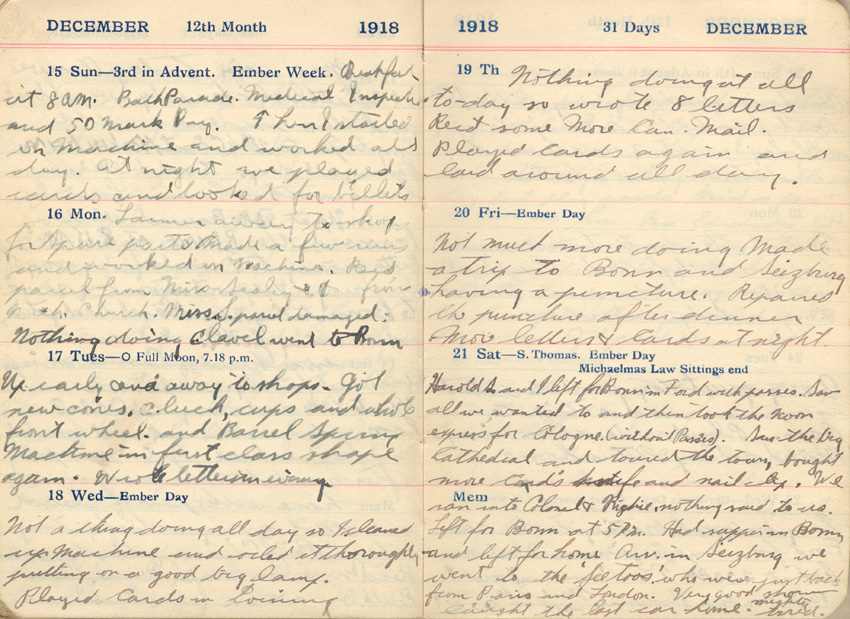 DECEMBER 12th Month 1918
15 Sun—3rd in Advent. Ember Week. Breakfast
at 8 AM. Bath Parade. Medical Inspection
and 50 Mark Pay. Then I started
on Machine and worked all
day. At night we played
cards and looked for billets
16 Mon. away to shops
for spare parts Made a few
and worked on Machine. Rec'd
parcel from Miss & 1 from
Church. Miss S. parcel damaged.
Nothing doing Clavel went to Bonn
17 Tues—O Full Moon, 7.18 p.m.
Up early and away to shops. Got
new cones, cluch, cups and whole
front wheel. and Barrel Spring
Machine in first class shape
again. Wrote letter in evening
18 Wed—Ember Day
Not a thing doing all day so I cleaned
up Machine and oiled it thoroughly
putting on a good big lamp.
Played Cards in Evening
1918 31 Days DECEMBER
19 Th Nothing doing at all
to-day so wrote 8 letters
Rec'd some More Can. Mail.
Played Cards again and
laid around all day.
20 Fri—Ember Day
Not much more doing Made
a trip to Bonn and Seizburg
having a puncture. Repaired
the puncture after dinner
More letters & Cards at night.
21 Sat—S. Thomas. Ember Day
Michaelmas Law Sittings end
Harold S. and I left for Bonn in Ford with passes. Saw
all we wanted to and then took the noon
express for Cologne. (without Passes). Saw the big
Cathedral and toured the town, bought
more cards knife and nail clip. We
Mem
ran into Colonel & nothing said to us.
Left for Bonn at 5 P.M. Had supper in Bonn
and left for home Arr. in Seizburg we
went to the who were just back
from Paris and London. Very good show
caught the last car home. mighty tired.